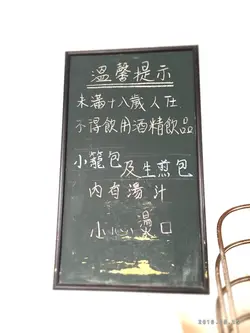 溫馨提示
未滿十八歲人仕
不得飲用酒精飲品
小籠包及生煎包
內有湯汁
小心燙口